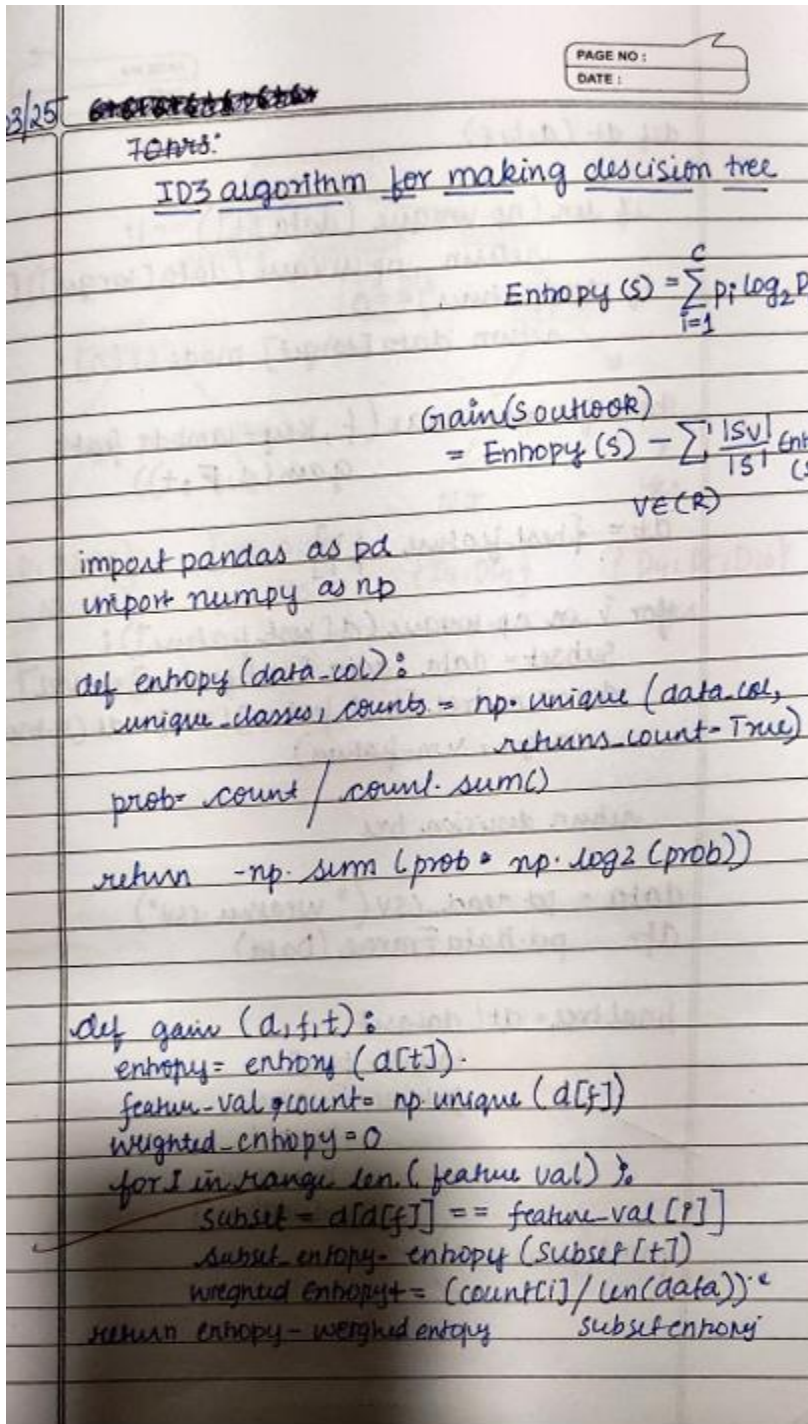 PAGE NO :
DATE :
03/25
ID3 algorithm for making descision tree
Entropy (S) = C∑i=1 pi log2 P
Gain(S outlook)
= Entropy (S) - ∑ |Sv| / |S| Ent
(S
VE(R)
import pandas as pd
import numpy as np
def entropy (data_col):
unique_classes, counts = np. unique (data_col,
returns_count=True)
prob= count / count. sum()
return -np. sum (prob * np. log2 (prob))
def gain (d,f,t):
entropy= entrony (d[t]).
featur_val, count= np. unique (d[f])
weighted_entropy=0
for I in range len. (feature val):
subset = d[d[f]] == feature_val [i]]
subset_entopy= enhopy (subset [t])
weighted Entropy+= (count[i] / len(data)) *
subset entrony
return entropy - weighed entopy